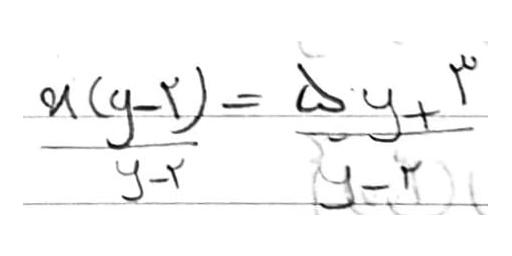 x(y-۲)/y-۲ = ۵y+۳/y-۲